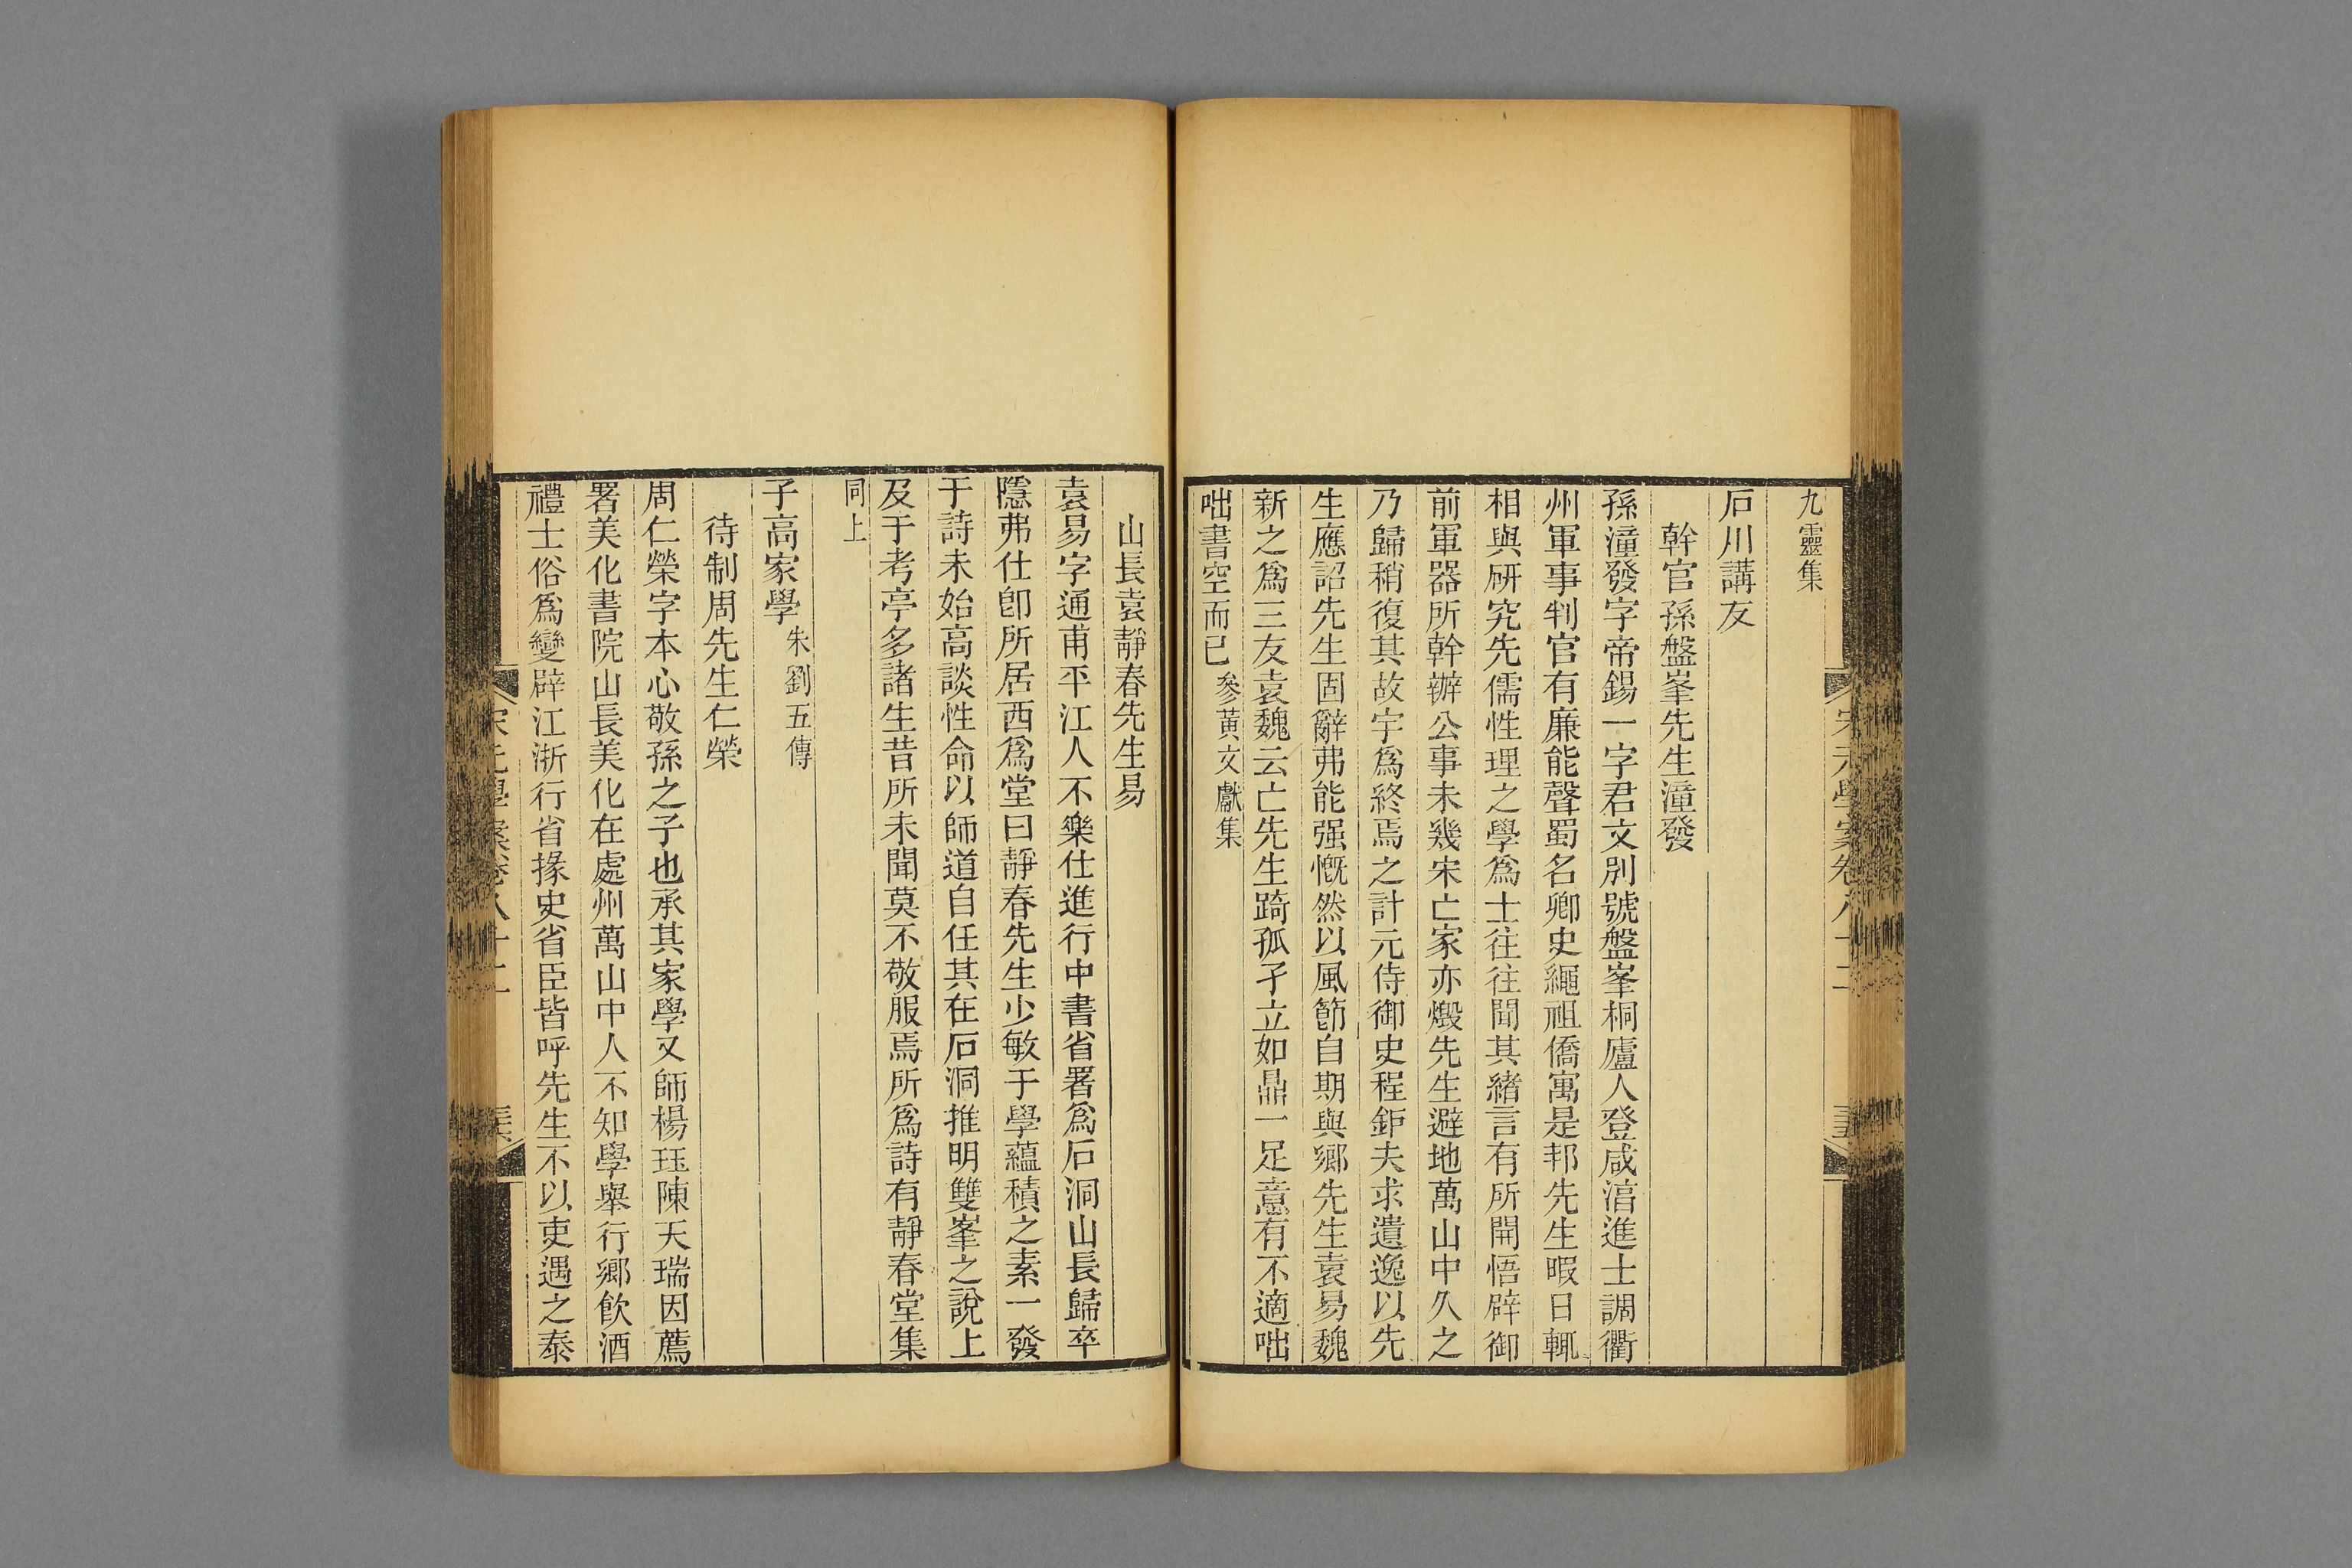 九靈集
石川講友
幹官孫盤峯先生潼發
孫潼發字帝錫一字君文別號盤峯桐廬人登咸淳進士調衢
州軍事判官有廉能聲蜀名卿史繩祖僑寓是邦先生暇日輒
相與硏究先儒性理之學爲士往往聞其緒言有所開悟辟御
前軍器所幹辦公事未幾宋亡家亦燬先生避地萬山中久之
乃歸稍復其故宇爲終焉之計元侍御史程鉅夫求遺逸以先
生應詔先生固辭弗能强慨然以風節自期與鄉先生袁易魏
新之爲三友袁魏云亡先生踦孤孑立如鼎一足意有不適咄
咄書空而已參黃文獻集
山長袁靜春先生易
袁易字通甫平江人不樂仕進行中書省署爲石洞山長歸卒
隱弗仕卽所居西爲堂曰靜春先生少敏于學蘊積之素一發
于詩未始高談性命以師道自任其在石洞推明雙峯之說上
及于考亭多諸生昔所未聞莫不敬服焉所爲詩有靜春堂集
同上
子高家學朱劉五傳
待制周先生仁榮
周仁榮字本心敬孫之子也承其家學又師楊珏陳天瑞因薦
署美化書院山長美化在處州萬山中人不知學舉行鄉飮酒
禮士俗爲變辟江浙行省掾史省臣皆呼先生不以吏遇之泰
宋元學案卷八十二